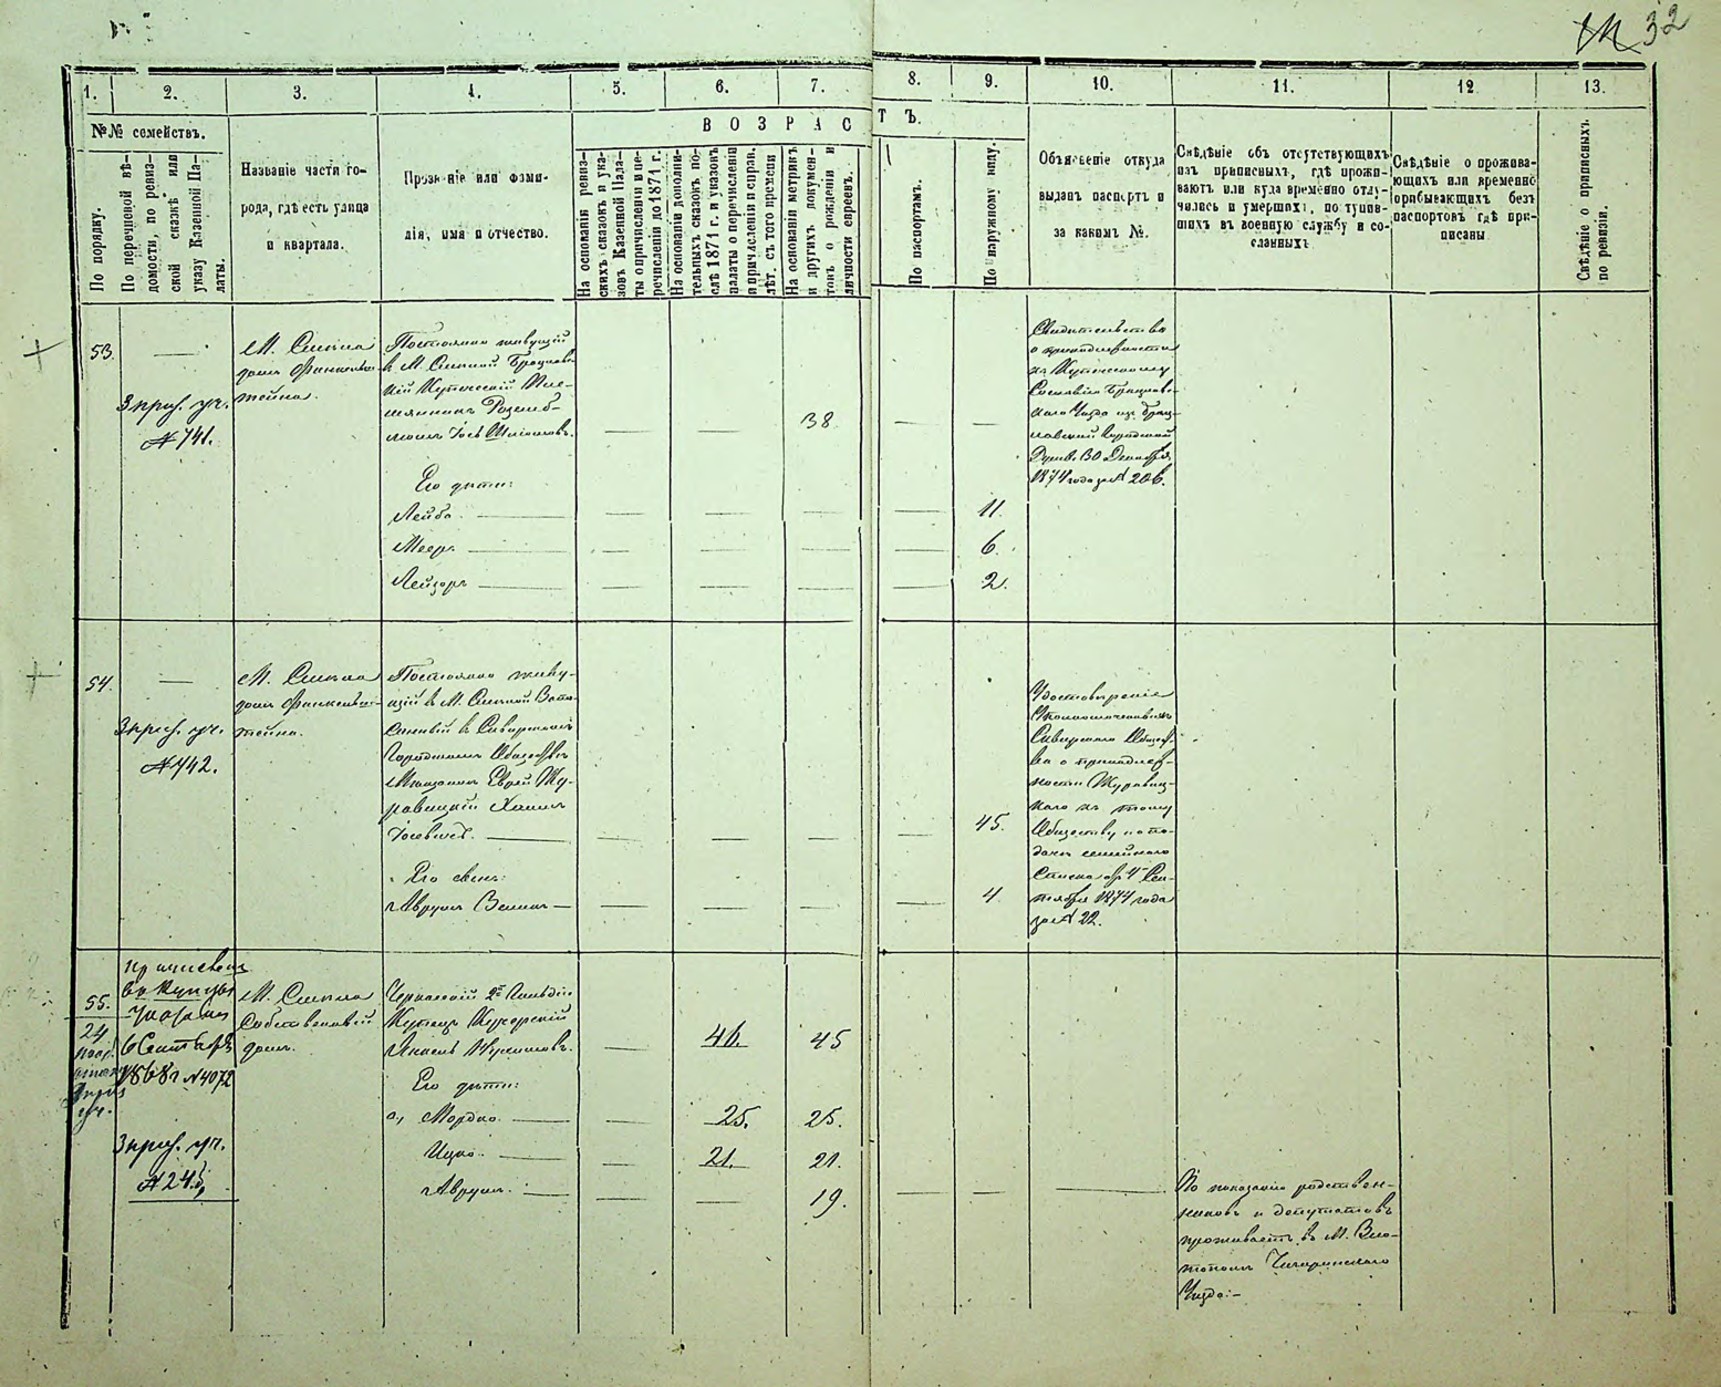 32
1. 2. 3. 4. 5. 6. 7. 8. 9. 10. 11. 12 13.
№№ семействъ.
По порядку.
По перечневой вѣ-
домости, по ревиз-
ской сказкѣ или
указу Казенной Па-
латы.
Названіе части го-
рода, гдѣ есть улица
и квартала.
Прозваніе или фами-
лія, имя и отчество.
ВОЗРАСТЪ.
На основаніи ревиз-
скихъ сказокъ и ука-
зовъ Казенной Пала-
ты о причисленіи и пе-
речисленіи до 1871 г.
На основаніи дополни-
тельныхъ сказокъ по-
слѣ 1871 г. и указовъ
палаты о перечисленіи
и причисленіи и справ.
лѣт. съ того времени
На основаніи метрикъ
и другихъ докумен-
товъ о рожденіи и
личности евреевъ.
По паспортамъ.
По наружному виду.
Объясненіе откуда
выданъ паспортъ и
за какимъ №.
Свѣдѣніе объ отсутствующихъ
изъ приписныхъ, гдѣ прожи-
ваютъ или куда временно отлу-
чились и умершихъ, поступив-
шихъ въ военную службу и со-
сланныхъ
Свѣдѣніе о прожива-
ющихъ или временно
прибывающихъ безъ
паспортовъ гдѣ при-
писаны
Свѣдѣніе о приписныхъ
по ревизіи.
53.
3 приз. уч.
№ 741.
М. Смѣла
домъ
Постоянно живущій
въ М. Смѣлой Брацлавс-
кій Купеческій Пле-
мянникъ
Іось
38
Свидѣтельство
о принадлежности
къ Купеческому
Сословію Брацлавс-
каго Уѣзда изъ Брац-
лавской Городской
Думы 30 Декабря
1874 года за № 206.
Его дѣти:
Лейба 11.
Мееръ 6.
Лейзоръ 2.
54.
3 приз. уч.
№ 742.
М. Смѣла
домъ
Постоянно живу-
щій въ М. Смѣлой Запи-
санный въ Саврanskомъ
Городскомъ Обществѣ
Мѣщанинъ Еврей Жу-
равицкій Хаимъ
45.
Удостовѣреніе
Уполномоченныхъ
Общест-
ва о принадлеж-
ности Журавиц-
каго къ тому
Обществу и по-
дачи семейнаго
Списка отъ 4 Сен-
тября 1874 года
за № 22.
Его сынъ:
Аврумъ 4
55.
24
Причисленъ
въ Купцы
Указомъ
6 Сентября
1868 г. № 4072
3 приз. уч.
№ 24
М. Смѣла
Собственный
домъ.
Черкасскій 2й Гильдіи
Купецъ
46. 45
Его дѣти:
а, Мордко 25. 25.
Ицко 21. 21.
Аврумъ. 19.
По показанію родствен-
никовъ и депутатовъ
проживаетъ въ М. Зло-
тополь Чигиринскаго
Уѣзда:-